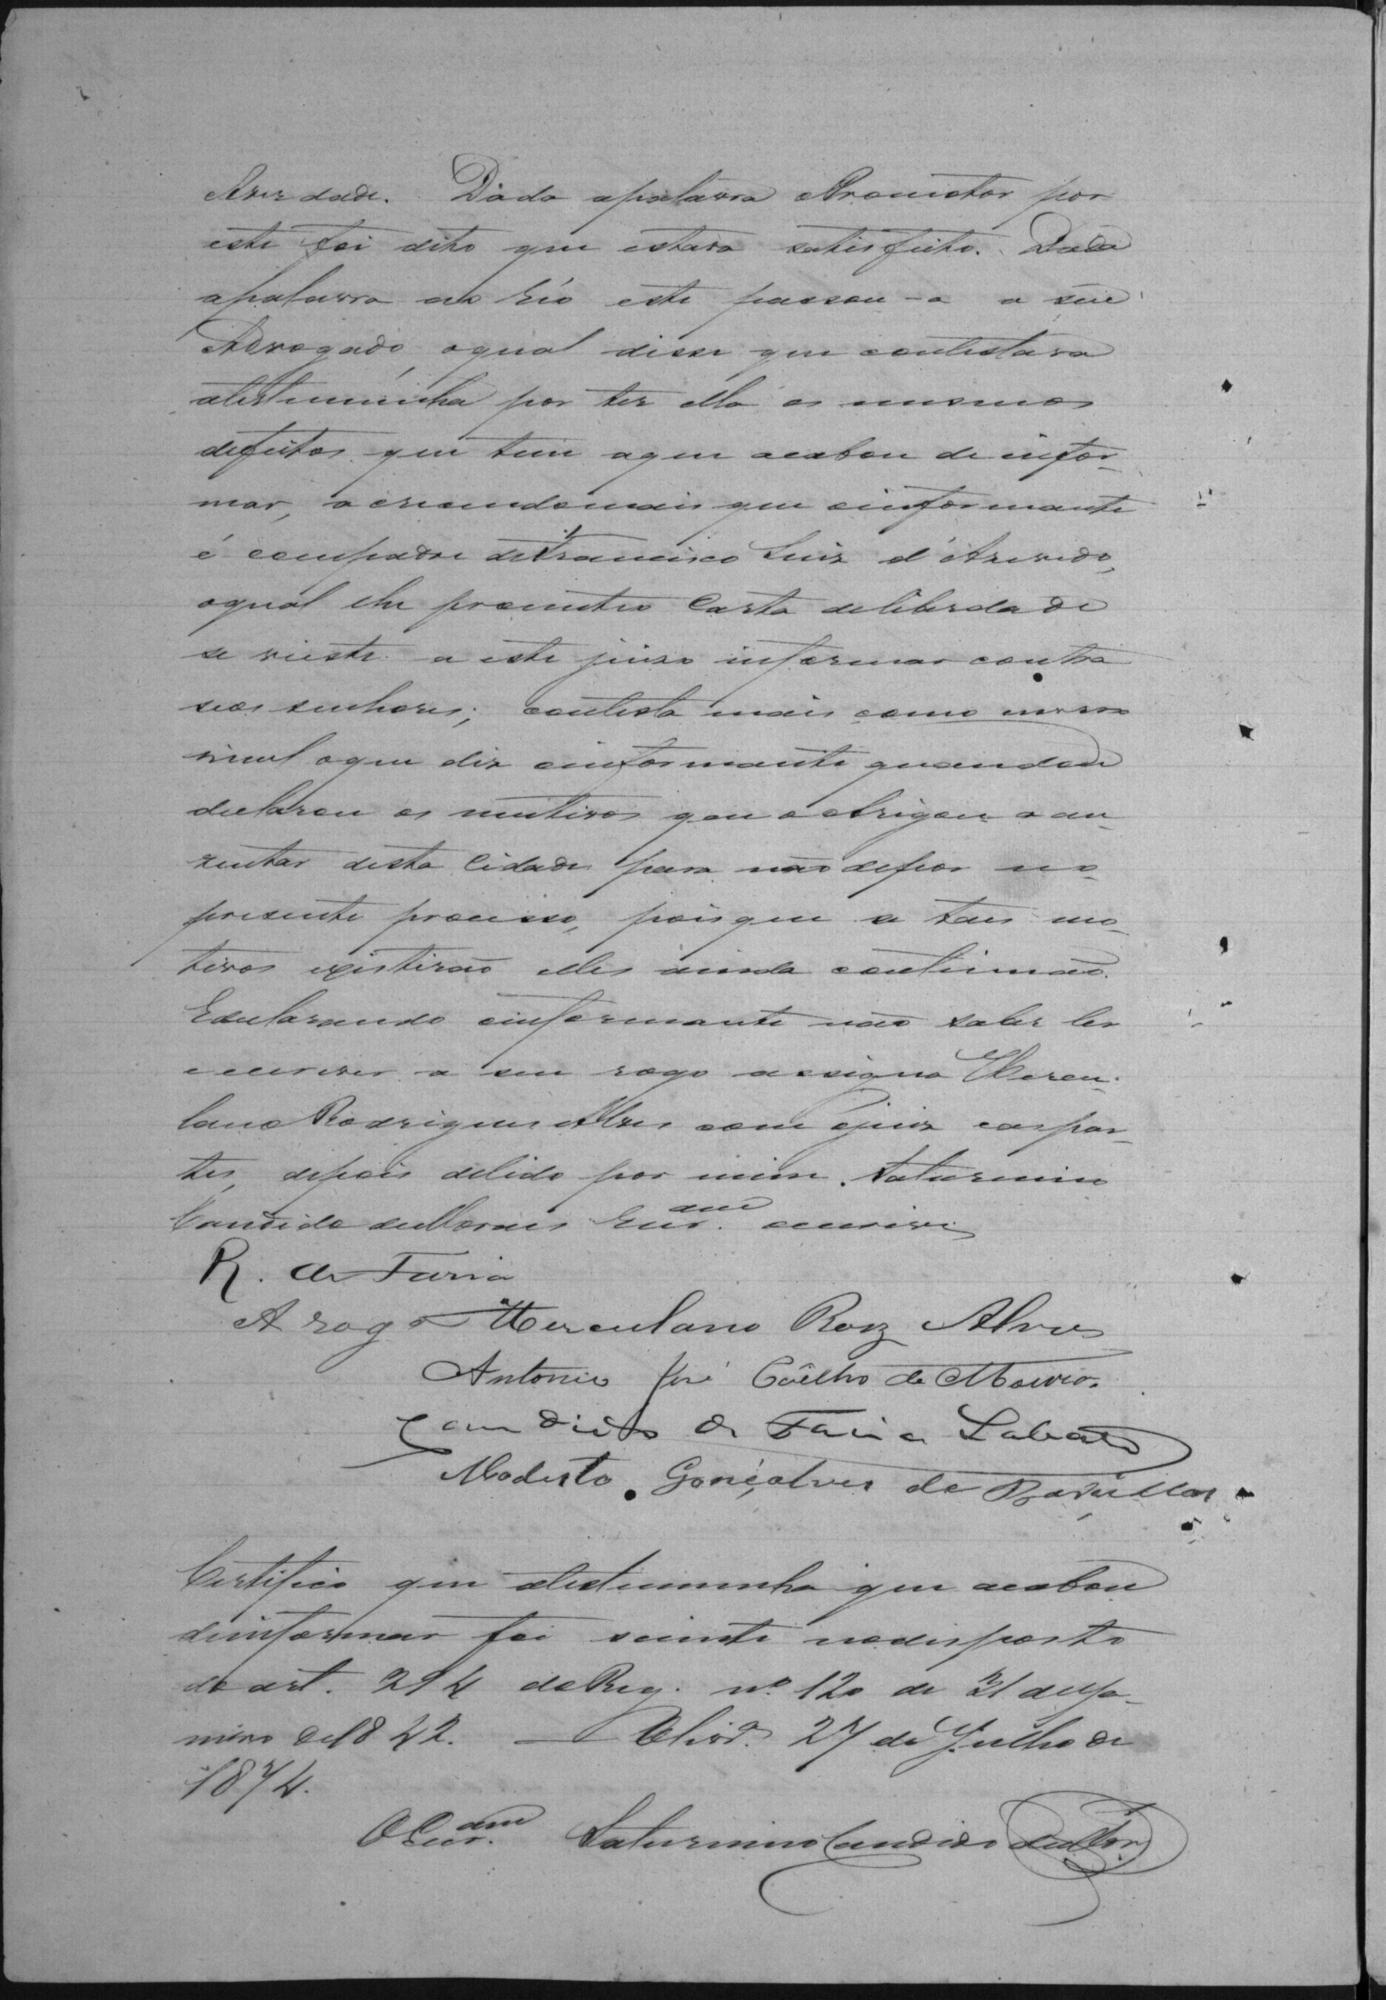 Averdade. Dada apalavra Promotor por
este foi dito que estava satisfeito. Dada
apalavra ao Réo este passou-a a seu
Advogado, oqual disse que contestava
atestemunha por ter ella os mesmos
defeitos que tem aque acabou de infor-
mar, acrecendo mais que oinformante
é compadre deFrancisco Luiz d'Azevedo,
oqual lhe prometeo Carta deliberdade
se viesse a este juizo informar contra
seos senhores; contesta mais como
oque diz oinformante quando
declarou os motivos que o obrigou a au-
zentar desta Cidade para não depor no
presente processo, pois que se taes mo-
tivos existirão elles ainda continuão.
Edeclarando oinformante não saber ler
e escrever a seu rogo assigna Hercu-
lano Rodrigues Alves com ojuiz easpar-
tes, depois delido por mim. Saturnino
Candido deMoraes Escr.am escrivi
R. de Faria
A rogo Herculano Roiz Alves
Antonio José Coêlho de
Candido de Faria Lobato
Modesto Gonçalves de
Certifico que atestemunha que acabou
deinformar foi sciente nodisposto
do art. 294 doReg. nº 120 de 31 deJa-
neiro de1842. — 27 de Julho de
1874.
O Escr.am Saturnino Candido deMor.